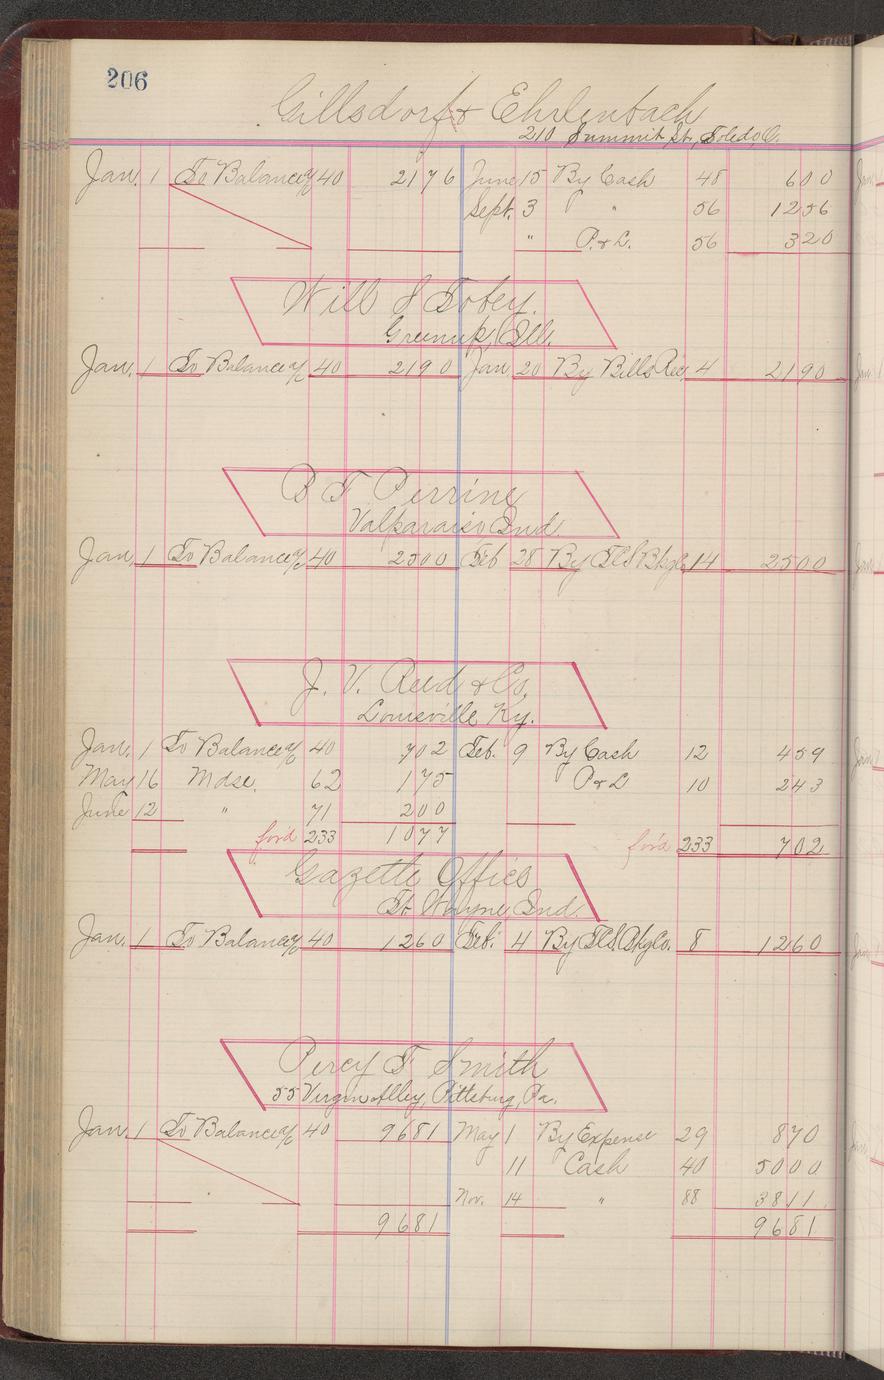 206
Gillsdorf & Ehrlenbach
210 Summit St., Toledo, O.
Jan. 1 To Balance a/c 40 2176 June 15 By Cash 48 600
Sept. 3 " " 56 1256
" P. & L. 56 320
Will S Tobey.
Greenup, Ill.
Jan. 1 To Balance a/c 40 2190 Jan 20 By Bills Rec. 4 2190
B T Perrine
Valparaiso Ind.
Jan. 1 To Balance a/c 40 2500 Feb 28 By T C S Bkg Co 14 2500
J. V. Reed & Co.
Louisville Ky.
Jan. 1 To Balance a/c 40 702 Feb. 9 By Cash 12 459
May 16 Mdse. 62 175 P & L 10 243
June 12 " 71 200
for'd 233 1077 for'd 233 702
Gazette Office
Ft Wayne Ind.
Jan. 1 To Balance a/c 40 1260 Feb. 4 By T.C.S. Bkg Co. 8 1260
Percy F Smith
55 Virgin Alley, Pittsburg, Pa.
Jan. 1 To Balance a/c 40 9681 May 1 By Expense 29 870
11 Cash 40 5000
Nov. 14 " 88 3811
9681 9681